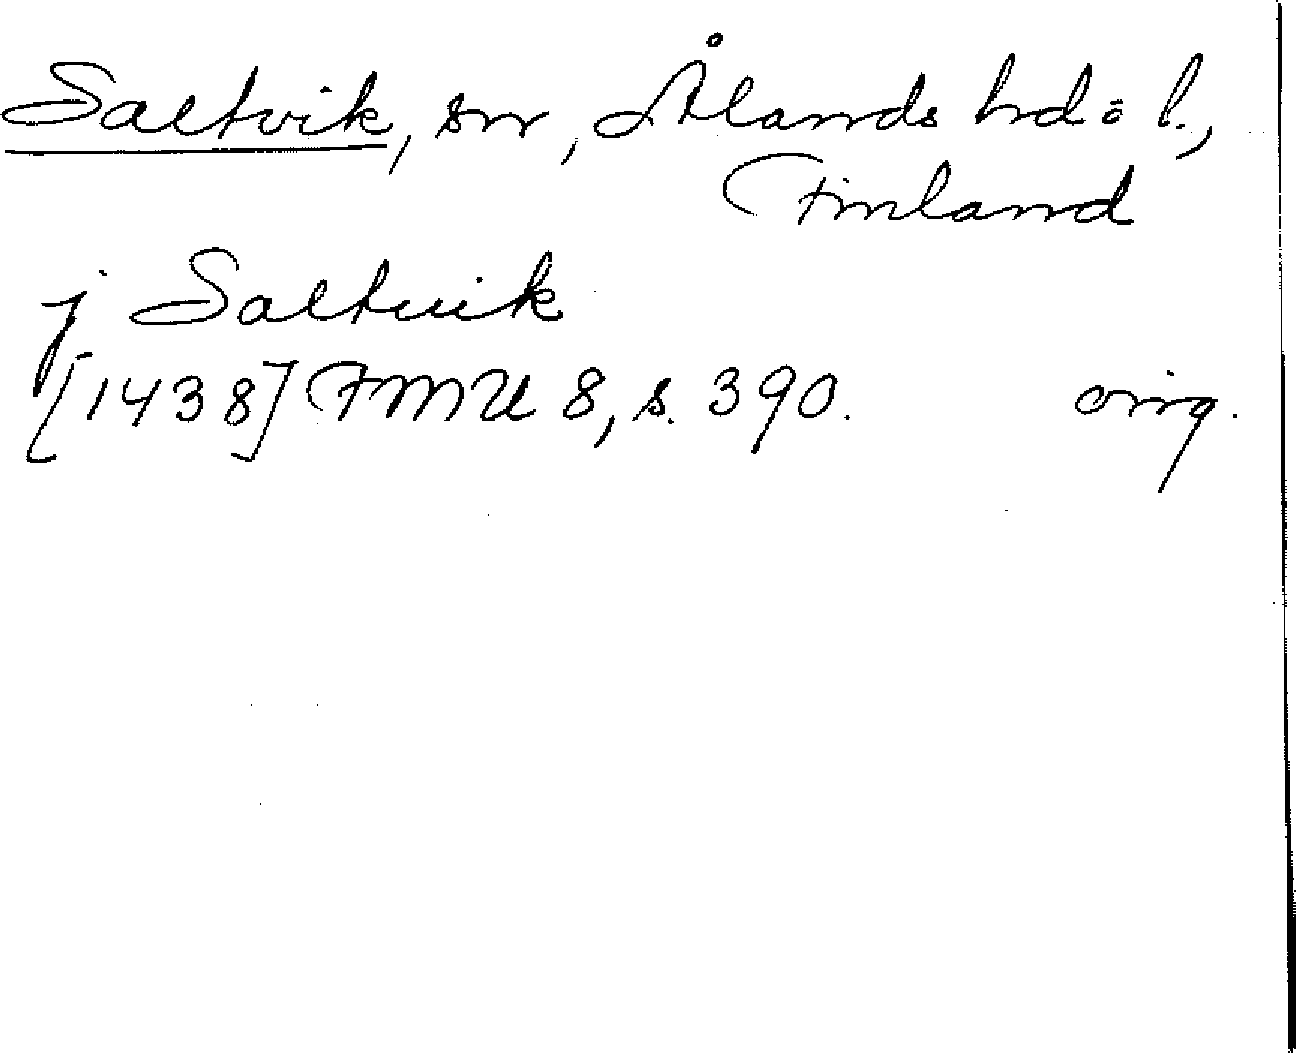 Saltvik, sn, Ålands hd o l.,
Finland
j Saltuik
[1438] FMU 8, s. 390. orig.